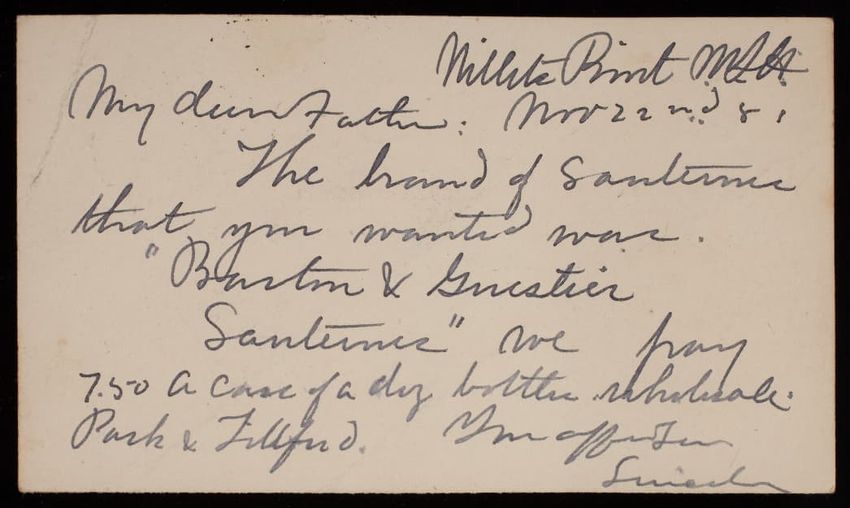 Willets Point N.Y.H.
My dear Father: Nov 22nd 81
The brand of Sauternes
that you wanted was.
"Barton & Guestier
Sauternes" we pay
7.50 a case of a doz bottles wholesale.
Park & Tillford. Your aff son
Lincoln